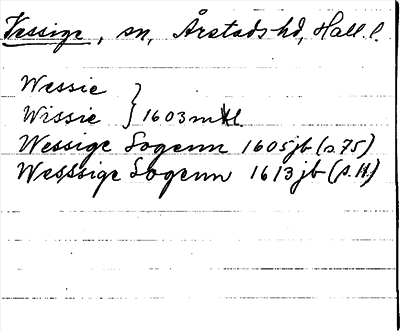 Vessige, sn, Årstads hd, Hall. l.
Wessie
Wissie } 1603 mtl
Wessige Sogenn 1605 jb (s. 75)
Wesssige Sogenn 1613 jb (s. 11)